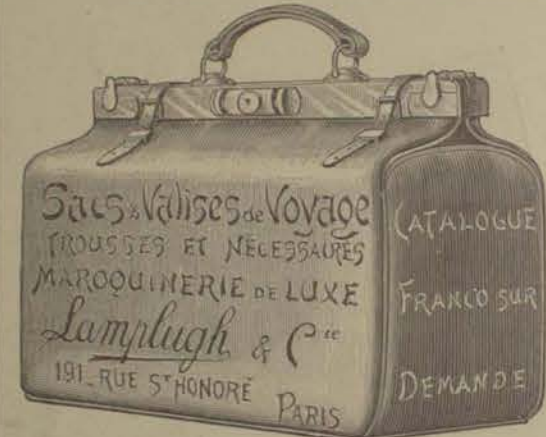 Sacs & Valises de Voyage
TROUSSES ET NÉCESSAIRES
MAROQUINERIE DE LUXE
Lamplugh & Cie
191_RUE ST HONORÉ
PARIS
CATALOGUE
FRANCO SUR
DEMANDE